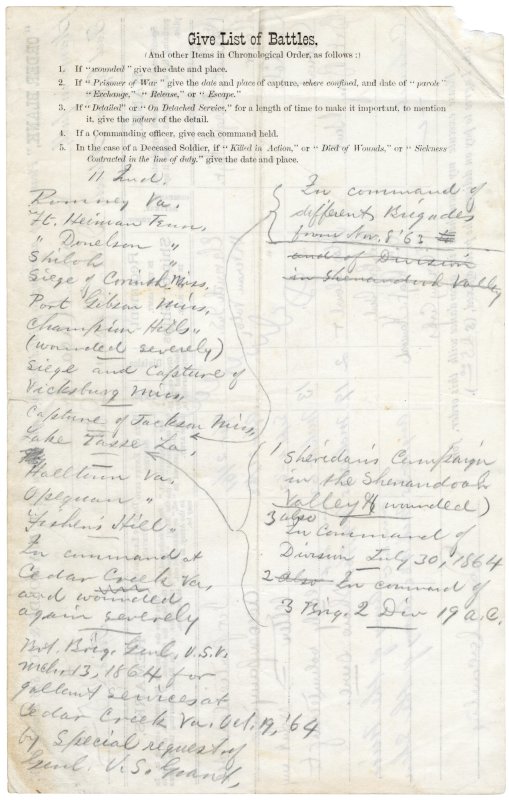 Give List of Battles.
(And other Items in Chronological Order, as follows:)
1. If "wounded" give the date and place.
2. If "Prisoner of War" give the date and place of capture, where confined, and date of "parole"
"Exchange," "Release," or "Escape."
3. If "Detailed" or "On Detached Service," for a length of time to make it important, to mention
it, give the nature of the detail.
4. If a Commanding officer, give each command held.
5. In the case of a Deceased Soldier, if "Killed in Action," or "Died of Wounds," or "Sickness
Contracted in the line of duty," give the date and place.
11 Ind.
Romney Va.
Ft. Heiman Tenn.
" Donelson "
Shiloh "
Siege of Corinth Miss.
Port Gibson Miss.
Champion Hills "
(wounded severely)
Siege and Capture of
Vicksburg Miss.
Capture of Jackson Miss.
Lake Tasse La.
Halltown Va.
Opequan "
Fisher's Hill "
In command at
Cedar Creek Va.
and wounded
again severely
Bvt. Brig. Genl. U.S.V.
Mch 13, 1864 for
gallant services at
Cedar Creek Va. Oct. 19, '64
by Special request of
Genl. U.S. Grant,
In command of
different Brigades
from Nov. 8 '63
and of Division
in Shenandoah Valley
1 Sheridan's Campaign
in the Shenandoah
Valley & wounded)
3 also
In Command of
Division July 30, 1864
2 also In command of
3 Brig. 2 Div 19 A.C.